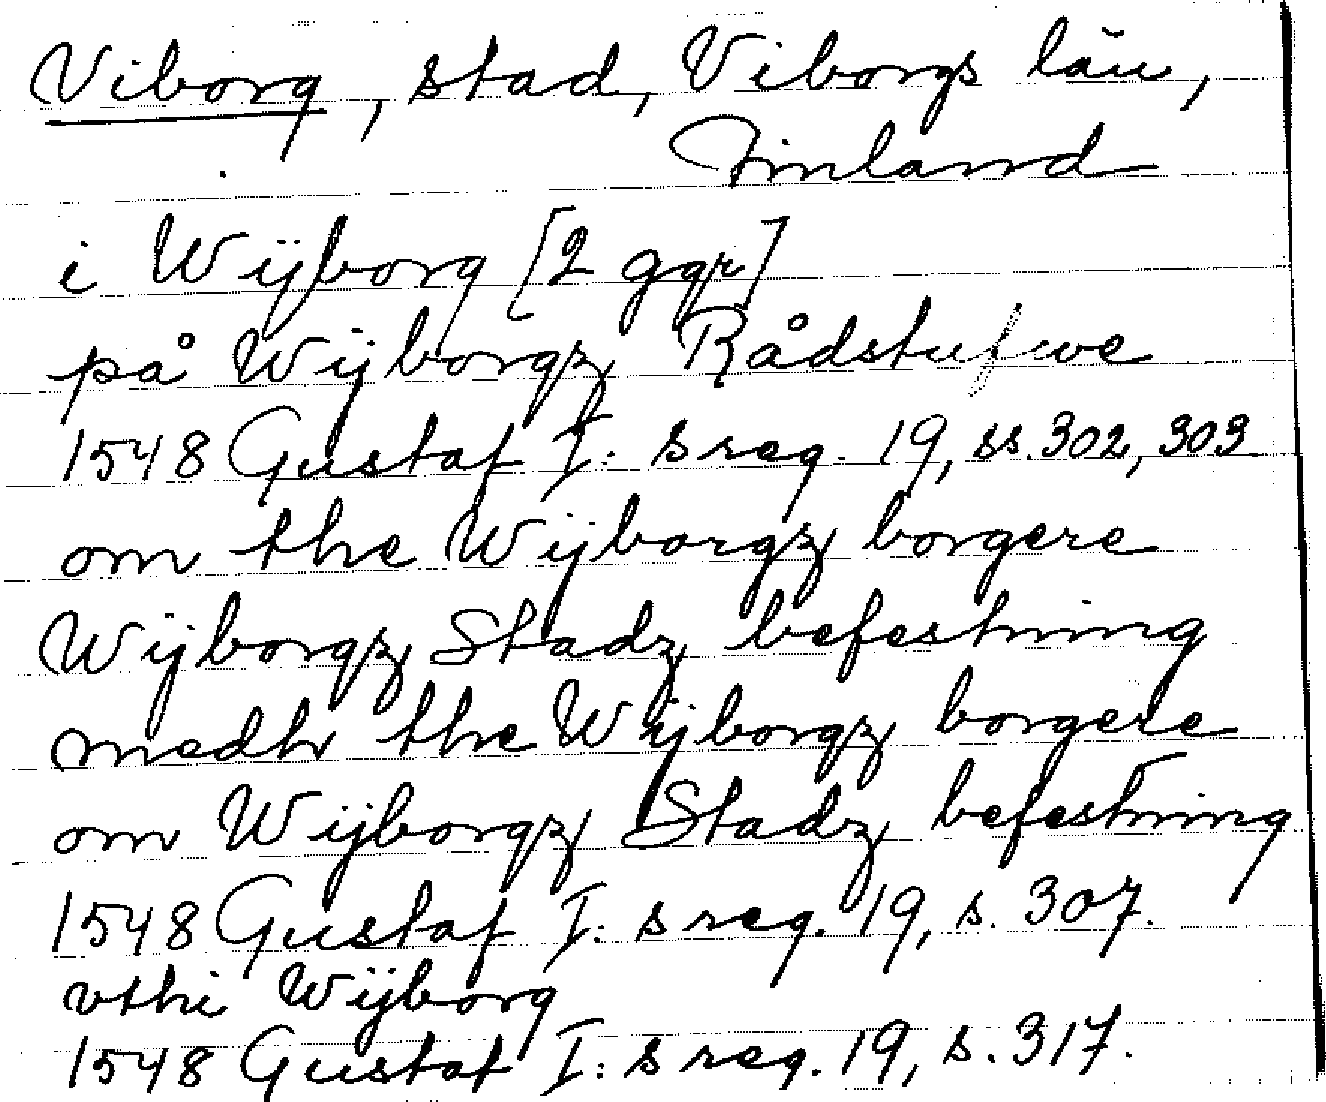 Viborg, stad, Viborgs län,
Finland
i Wijborg [2 ggr]
på Wijborgz Rådstufwe
1548 Gustaf I:s reg. 19, ss. 302, 303
om the Wijborgz borgere
Wijborgz Stadz befestning
medh the Wijborgz borgere
om Wijborgz Stadz befestning
1548 Gustaf I:s reg. 19, s. 307.
vthi Wijborg
1548 Gustaf I:s reg. 19, s. 317.